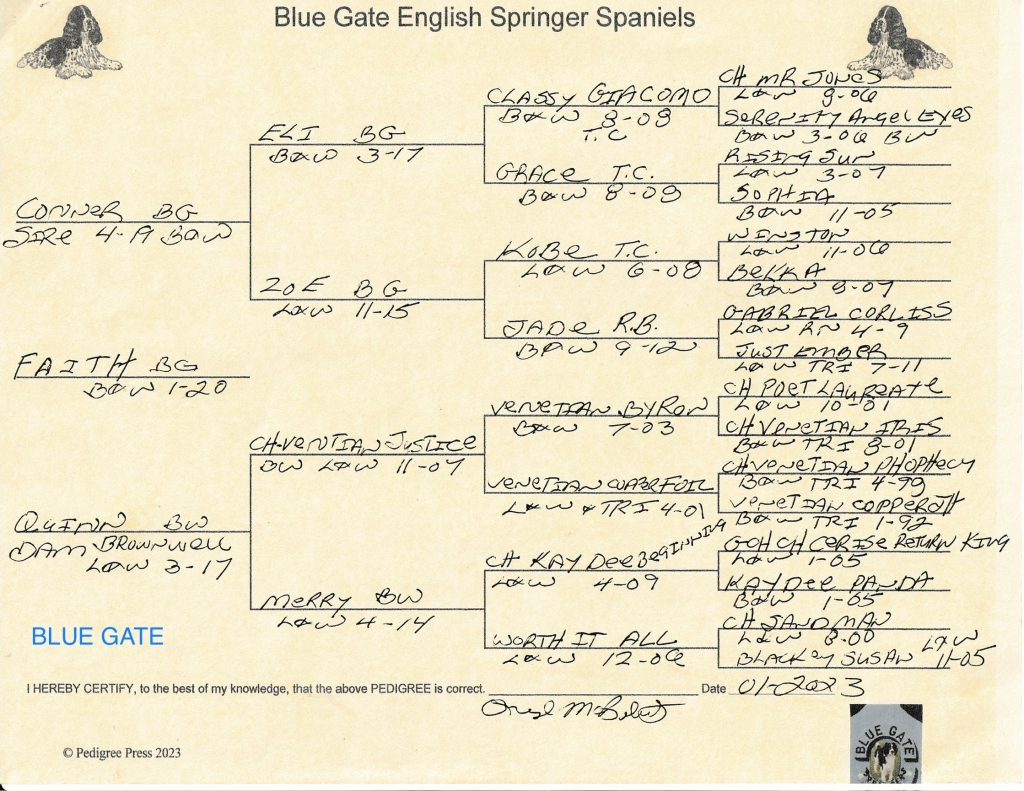 Blue Gate English Springer Spaniels
CONNER BG
SIRE 4-19 B&W
FAITH BG
B&W 1-20
QUINN BW
DAM BROWNWELL
L&W 3-17
ELI BG
B&W 3-17
ZOE BG
L&W 11-15
CH-VENTIAN JUSTICE
BW L&W 11-07
MERRY BW
L&W 4-14
CLASSY GIACOMO
B&W 8-08
T.C
GRACE T.C.
B&W 8-08
KOBE T.C.
L&W 6-08
JADE R.B.
B&W 9-12
VENETIAN BYRON
B&W 7-03
VENETIAN
L&W & TRI 4-01
CH KAY DEE BEGINNING
L&W 4-09
WORTH IT ALL
L&W 12-06
CH MR JONES
L&W 9-06
SERENITY ANGEL EYES
B&W 3-06 BW
RISING SUN
L&W 3-07
SOPHIA
B&W 11-05
WINSTON
L&W 11-06
BEKKA
B&W 8-07
GABRIEL CORLISS
L&W RN 4-9
JUST EMBER
L&W TRI 7-11
CH POET LAUREATE
L&W 10-01
CH VENETIAN IRIS
B&W TRI 8-01
CH VENETIAN PHOPHECY
B&W TRI 4-99
VENETIAN
B&W TRI 1-92
GCH CH CERISE RETURN KING
L&W 1-05
KAYDEE PANDA
B&W 1-05
CH SANDMAN
L&W 8-00
BLACKEY SUSAN L&W 11-05
BLUE GATE
I HEREBY CERTIFY, to the best of my knowledge, that the above PEDIGREE is correct.
Date 01-2023
© Pedigree Press 2023
BLUE GATE
SPRINGERS